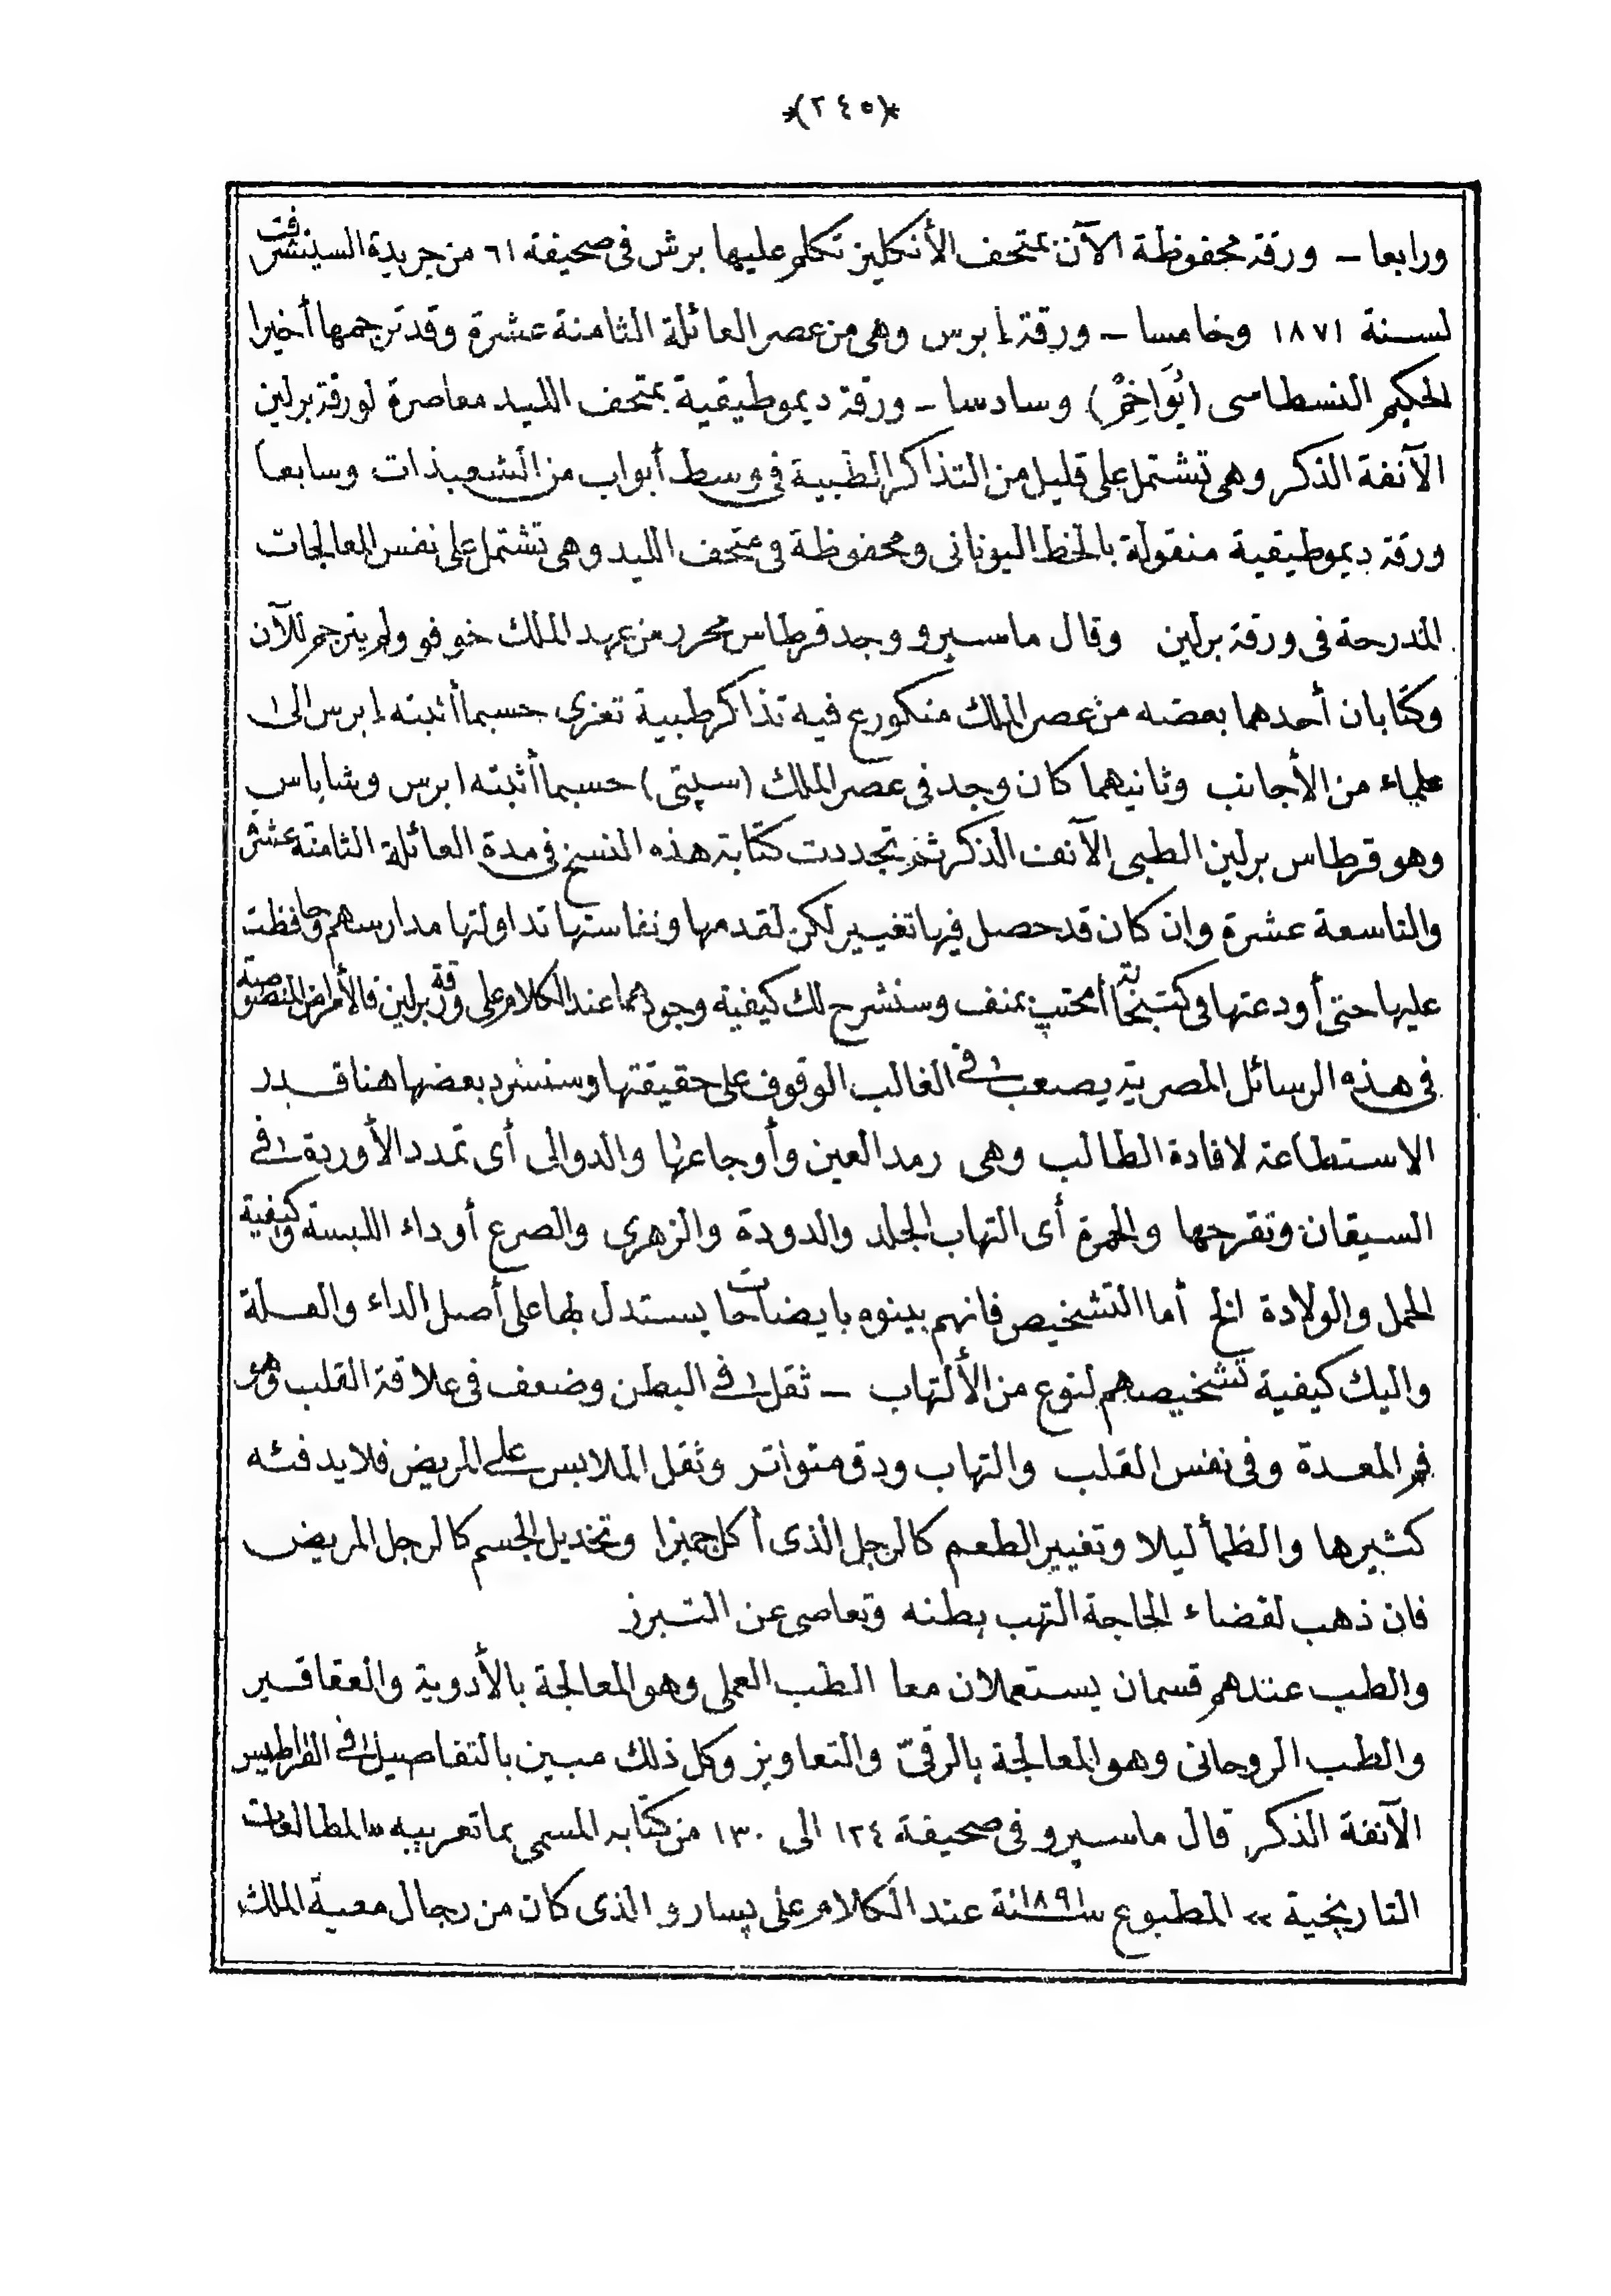 *(٢٤٥)*
ورابعا – ورقة محفوظة الآن بمتحف الأنكليز تكلم عليها برش فى صحيفة ٦١ من جريدة السينشرفت
لسنة ١٨٧١ وخامسا – ورقة إبرس وهى من عصر العائلة الثامنة عشرة وقد ترجمها أخيرا
الحكيم النسطاسى (يُوَاخِمْ) وسادسا – ورقة ديموطيقية بمتحف الليد معاصرة لورقة برلين
الآنفة الذكر وهى تشتمل على قليل من التذاكر الطبية فى وسط أبواب من الشعبذات وسابعا
ورقة ديموطيقية منقولة بالخط اليونانى ومحفوظة فى متحف الليد وهى تشتمل على نفس المعالجات
المندرجة فى ورقة برلين وقال ماسبرو وجد قرطاس محرر من عهد الملك خوفو ولم يترجم للآن
وكتابان أحدهما بعضه من عصر الملك منكورع فيه تذاكر طبية تعزى حسبما أثبته إبرس الى
علماء من الأجانب وثانيهما كان وجد فى عصر الملك (سپتى) حسبما أثبته ابرس وشاباس
وهو قرطاس برلين الطبى الآنف الذكر ثم تجددت كتابة هذه النسخ فى مدة العائلة الثامنة عشرة
والتاسعة عشرة وان كان قد حصل فيها تغيير لكن لقدمها ونفاستها تداولتها مدارسهم وحافظت
عليها حتى أودعتها فى كتبخانة أمحتب بمنف وسنشرح لك كيفية وجودهما عند الكلام على ورقة برلين فالأمراض المنصوصة
فى هذه الرسائل المصرية يصعب فى الغالب الوقوف على حقيقتها وسنسرد بعضها هنا قدر
الاستطاعة لافادة الطالب وهى رمد العين وأوجاعها والدوالى أى تمدد الأوردة فى
السيقان وتقرحها والحمرة أى التهاب الجلد والدودة والزهرى والصرع أو داء اللبسة وكيفية
الحمل والولادة الخ أما التشخيص فانهم بينوه بايضاحات يستدل بها على أصل الداء والعلة
واليك كيفية تشخيصهم لنوع من الألتهاب – ثقل فى البطن وضعف فى علاقة القلب وهو
فم المعدة وفى نفس القلب والتهاب ودق متواتر وثقل الملابس على المريض فلا يدفئه
كثيرها والظمأ ليلا وتغيير الطعم كالرجل الذى أكل جميزا وتخديل الجسم كالرجل المريض
فان ذهب لقضاء الحاجة التهب بطنه وتعاصى عن التبرز
والطب عندهم قسمان يستعملان معا الطب العملى وهو المعالجة بالأدوية والعقاقير
والطب الروحانى وهو المعالجة بالرقىّ والتعاويز وكل ذلك مبين بالتفاصيل فى القراطيس
الآنفة الذكر قال ماسبرو فى صحيفة ١٢٤ الى ١٣٠ من كتابه المسمى بما تعريبه «المطالعات
التاريخية» المطبوع سنة ١٨٩١ عند الكلام على پسارو الذى كان من رجال معية الملك